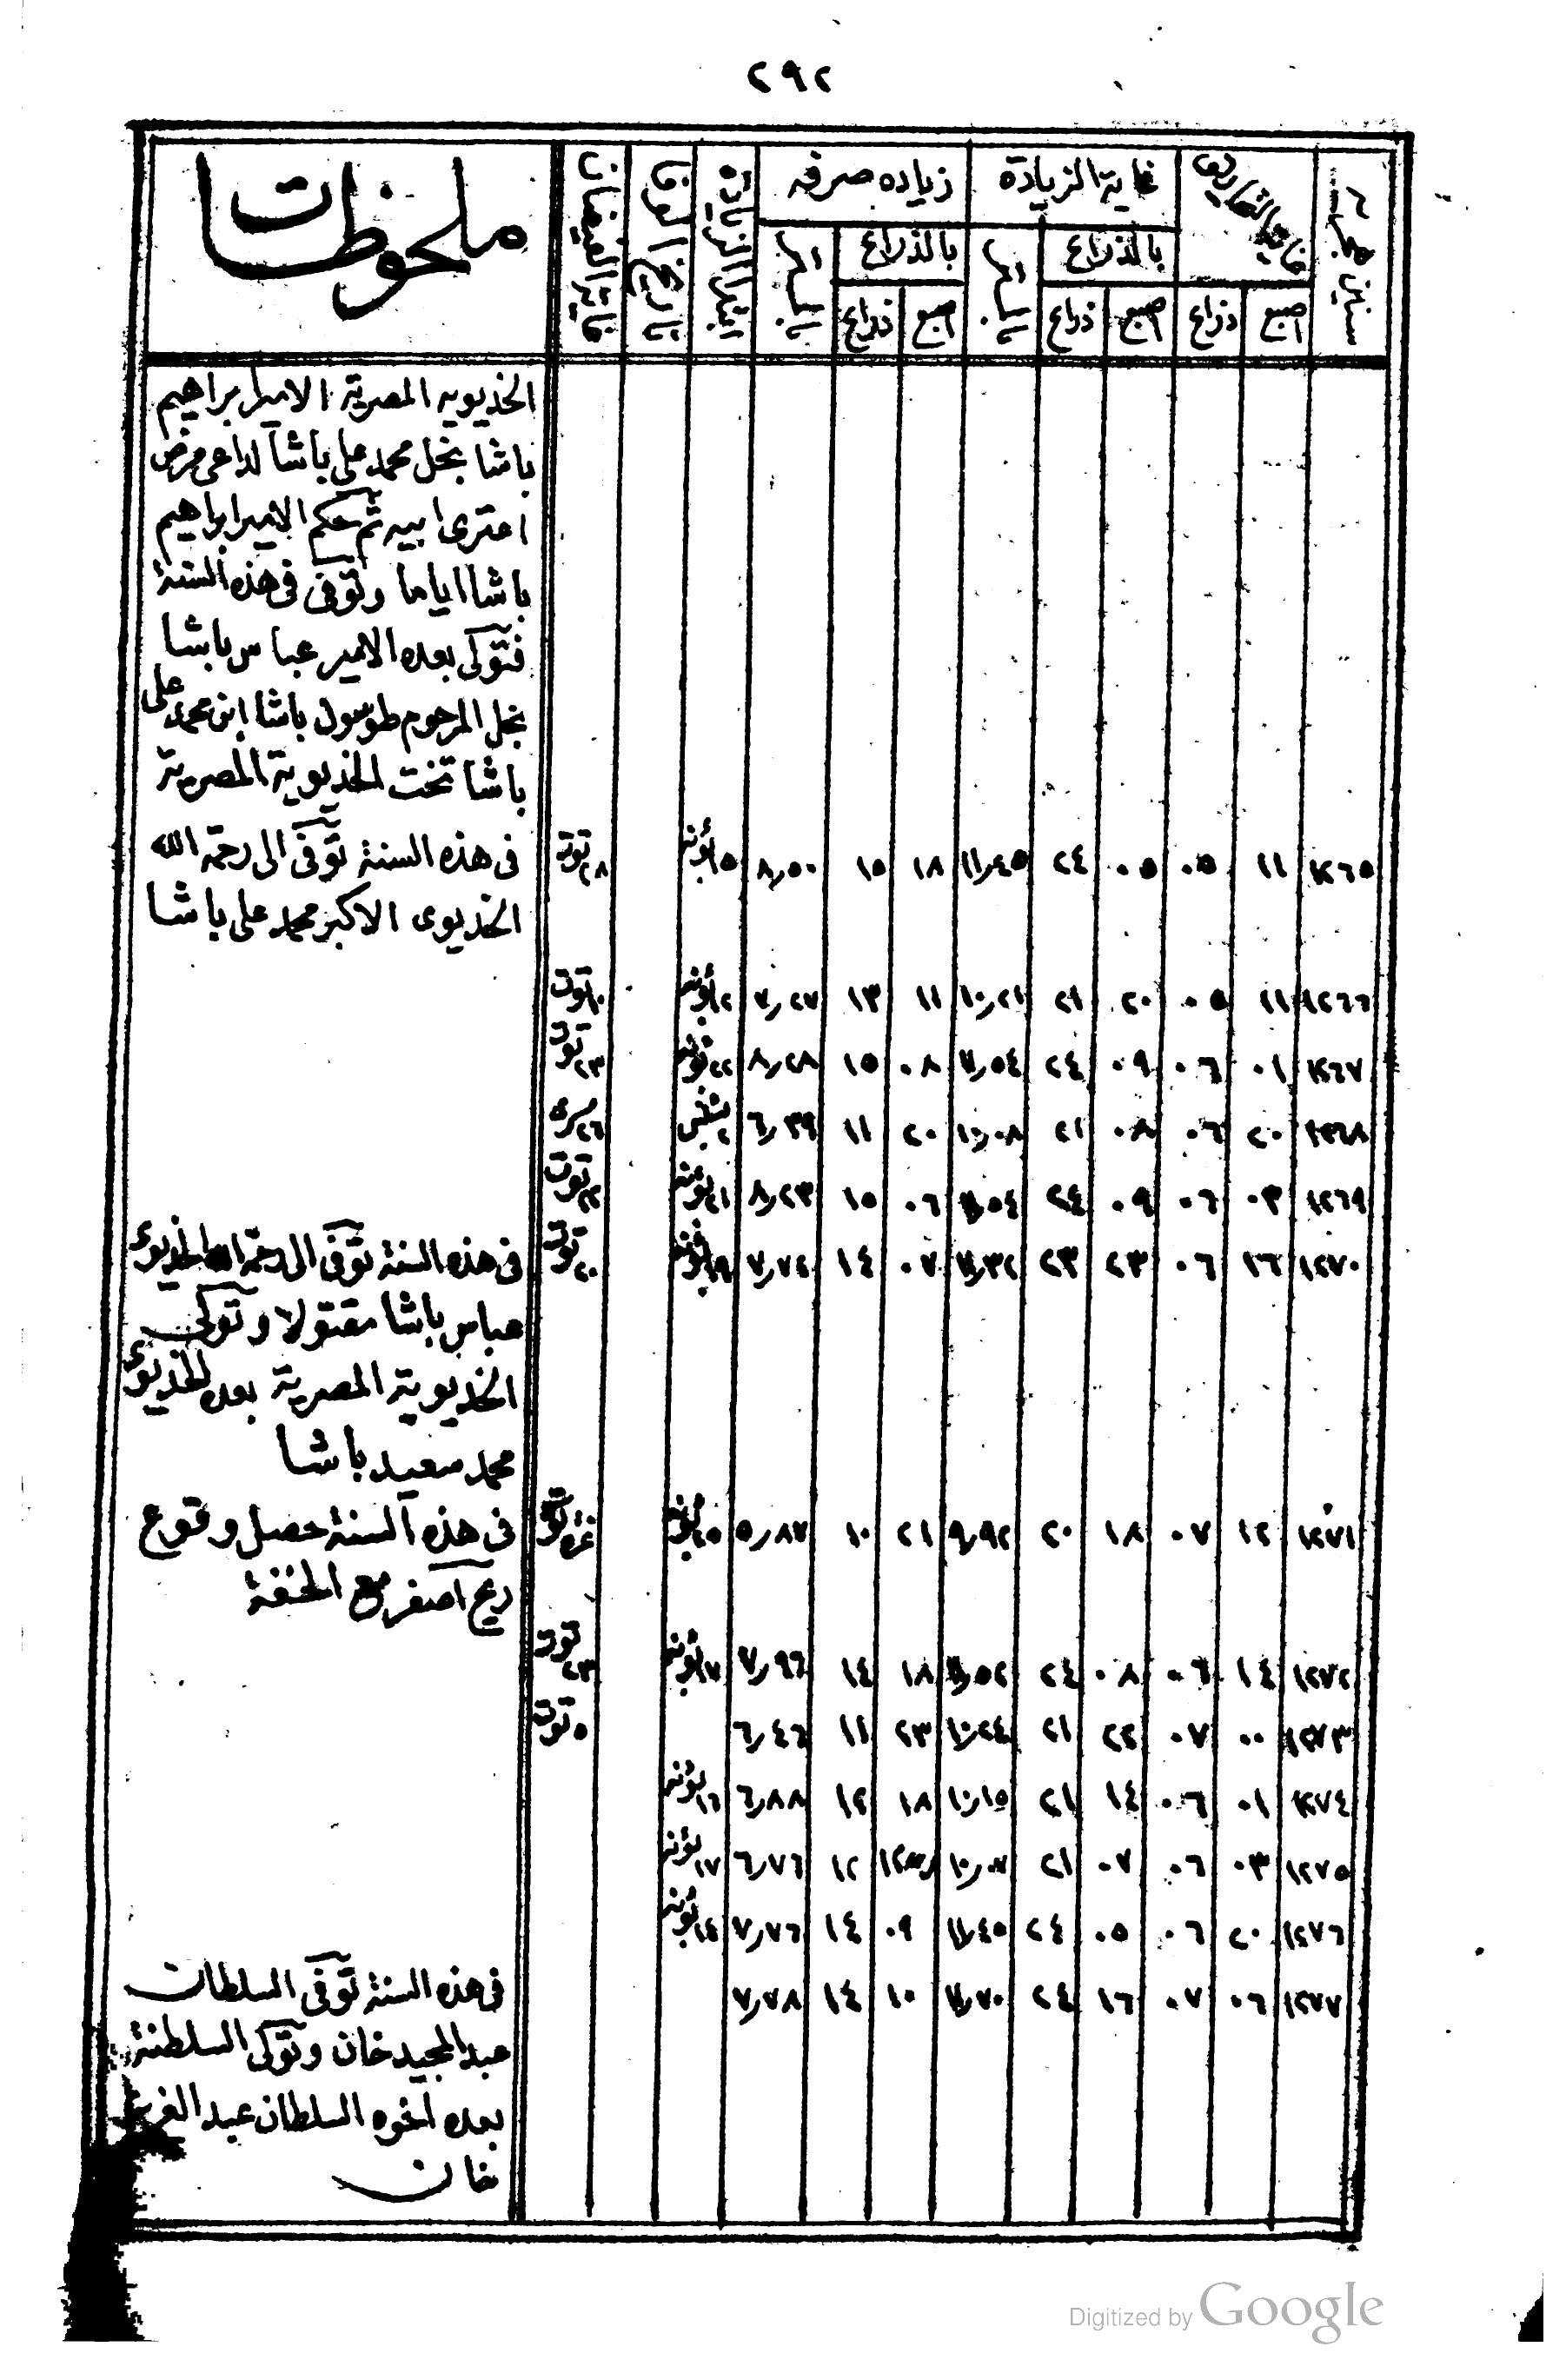 ٢٩٢
سنين هجرية
غاية التحاريق
غاية الزيادة
زياده صرفه
ابتداء الزيادة
تاريخ الوفا
غاية الفيضان
ملحوظات
بالذراع
بالمتر
بالذراع
بالمتر
اصبع ذراع اصبع ذراع اصبع ذراع
الخديويه المصرية الامير ابراهيم
باشا نجل محمد على باشا لداعى مرض
اعترى ابيه ثم حكم الامير ابراهيم
باشا اياما وتوفى فى هذه السنة
فتولى بعده الامير عباس باشا
نجل المرحوم طوسون باشا ابن محمد على
باشا تخت الخديوية المصرية
١٢٦٥ ١١ ٠٥ ٠٥ ٢٤ ١١,٤٥ ١٨ ١٥ ٨,٥٠ ١٥ بؤنه ٢٨ توت فى هذه السنة توفى الى رحمة الله
الخديوى الاكبر محمد على باشا
١٢٦٦ ١١ ٠٥ ٢٠ ٢١ ١٠,٢١ ١١ ١٣ ٧,٢٧ ١٢ بؤنه ١٠ توت
١٢٦٧ ٠١ ٠٦ ٠٩ ٢٤ ١١,٥٤ ٠٨ ١٥ ٨,٢٨ ٢٢ بؤنه ٢٣ توت
١٢٦٨ ٢٠ ٠٦ ٠٨ ٢١ ١٠,٠٨ ٢٠ ١١ ٦,٣٩ ٢ بشنس ٢٦ مسرى
١٢٦٩ ٠٣ ٠٦ ٠٩ ٢٤ ١١,٥٤ ٠٦ ١٥ ٨,٢٣ ٢١ بؤنه ٢٢ توت
١٢٧٠ ١٦ ٠٦ ٢٣ ٢٣ ١١,٣٢ ٠٧ ١٤ ٧,٧٤ ١٩ بؤنه ٢٠ توت فى هذه السنة توفى الى رحمة الله الخديوى
عباس باشا مقتولا وتولى
الخديوية المصرية بعده الخديوى
محمد سعيد باشا
١٢٧١ ١٢ ٠٧ ١٨ ٢٠ ٩,٩٢ ٢١ ١٠ ٥,٨٧ ٢٥ بؤنه غرة توت فى هذه السنة حصل وقوع
ريح اصفر مع الخفة
١٢٧٢ ١٤ ٠٦ ٠٨ ٢٤ ١١,٥٢ ١٨ ١٤ ٧,٩٦ ١٧ بؤنه ٢٣ توت
١٢٧٣ ٠٠ ٠٧ ٢٢ ٢١ ١٠,٢٤ ٢٣ ١١ ٦,٤٦ ٥ توت
١٢٧٤ ٠١ ٠٦ ١٤ ٢١ ١٠,١٥ ١٨ ١٢ ٦,٨٨ ١٦ بؤنه
١٢٧٥ ٠٣ ٠٦ ٠٧ ٢١ ١٠,٠٧ ١٢ ٦,٧٦ ١٧ بؤنه
١٢٧٦ ٢٠ ٠٦ ٠٥ ٢٤ ١١,٤٥ ٠٩ ١٤ ٧,٧٦ ١٤ بؤنه
١٢٧٧ ٠٦ ٠٧ ١٦ ٢٤ ١١,٧٠ ١٠ ١٤ ٧,٧٨ فى هذه السنة توفى السلطان
عبد المجيد خان وتولى السلطنة
بعده اخوه السلطان عبد العزيز
خان
Digitized by Google